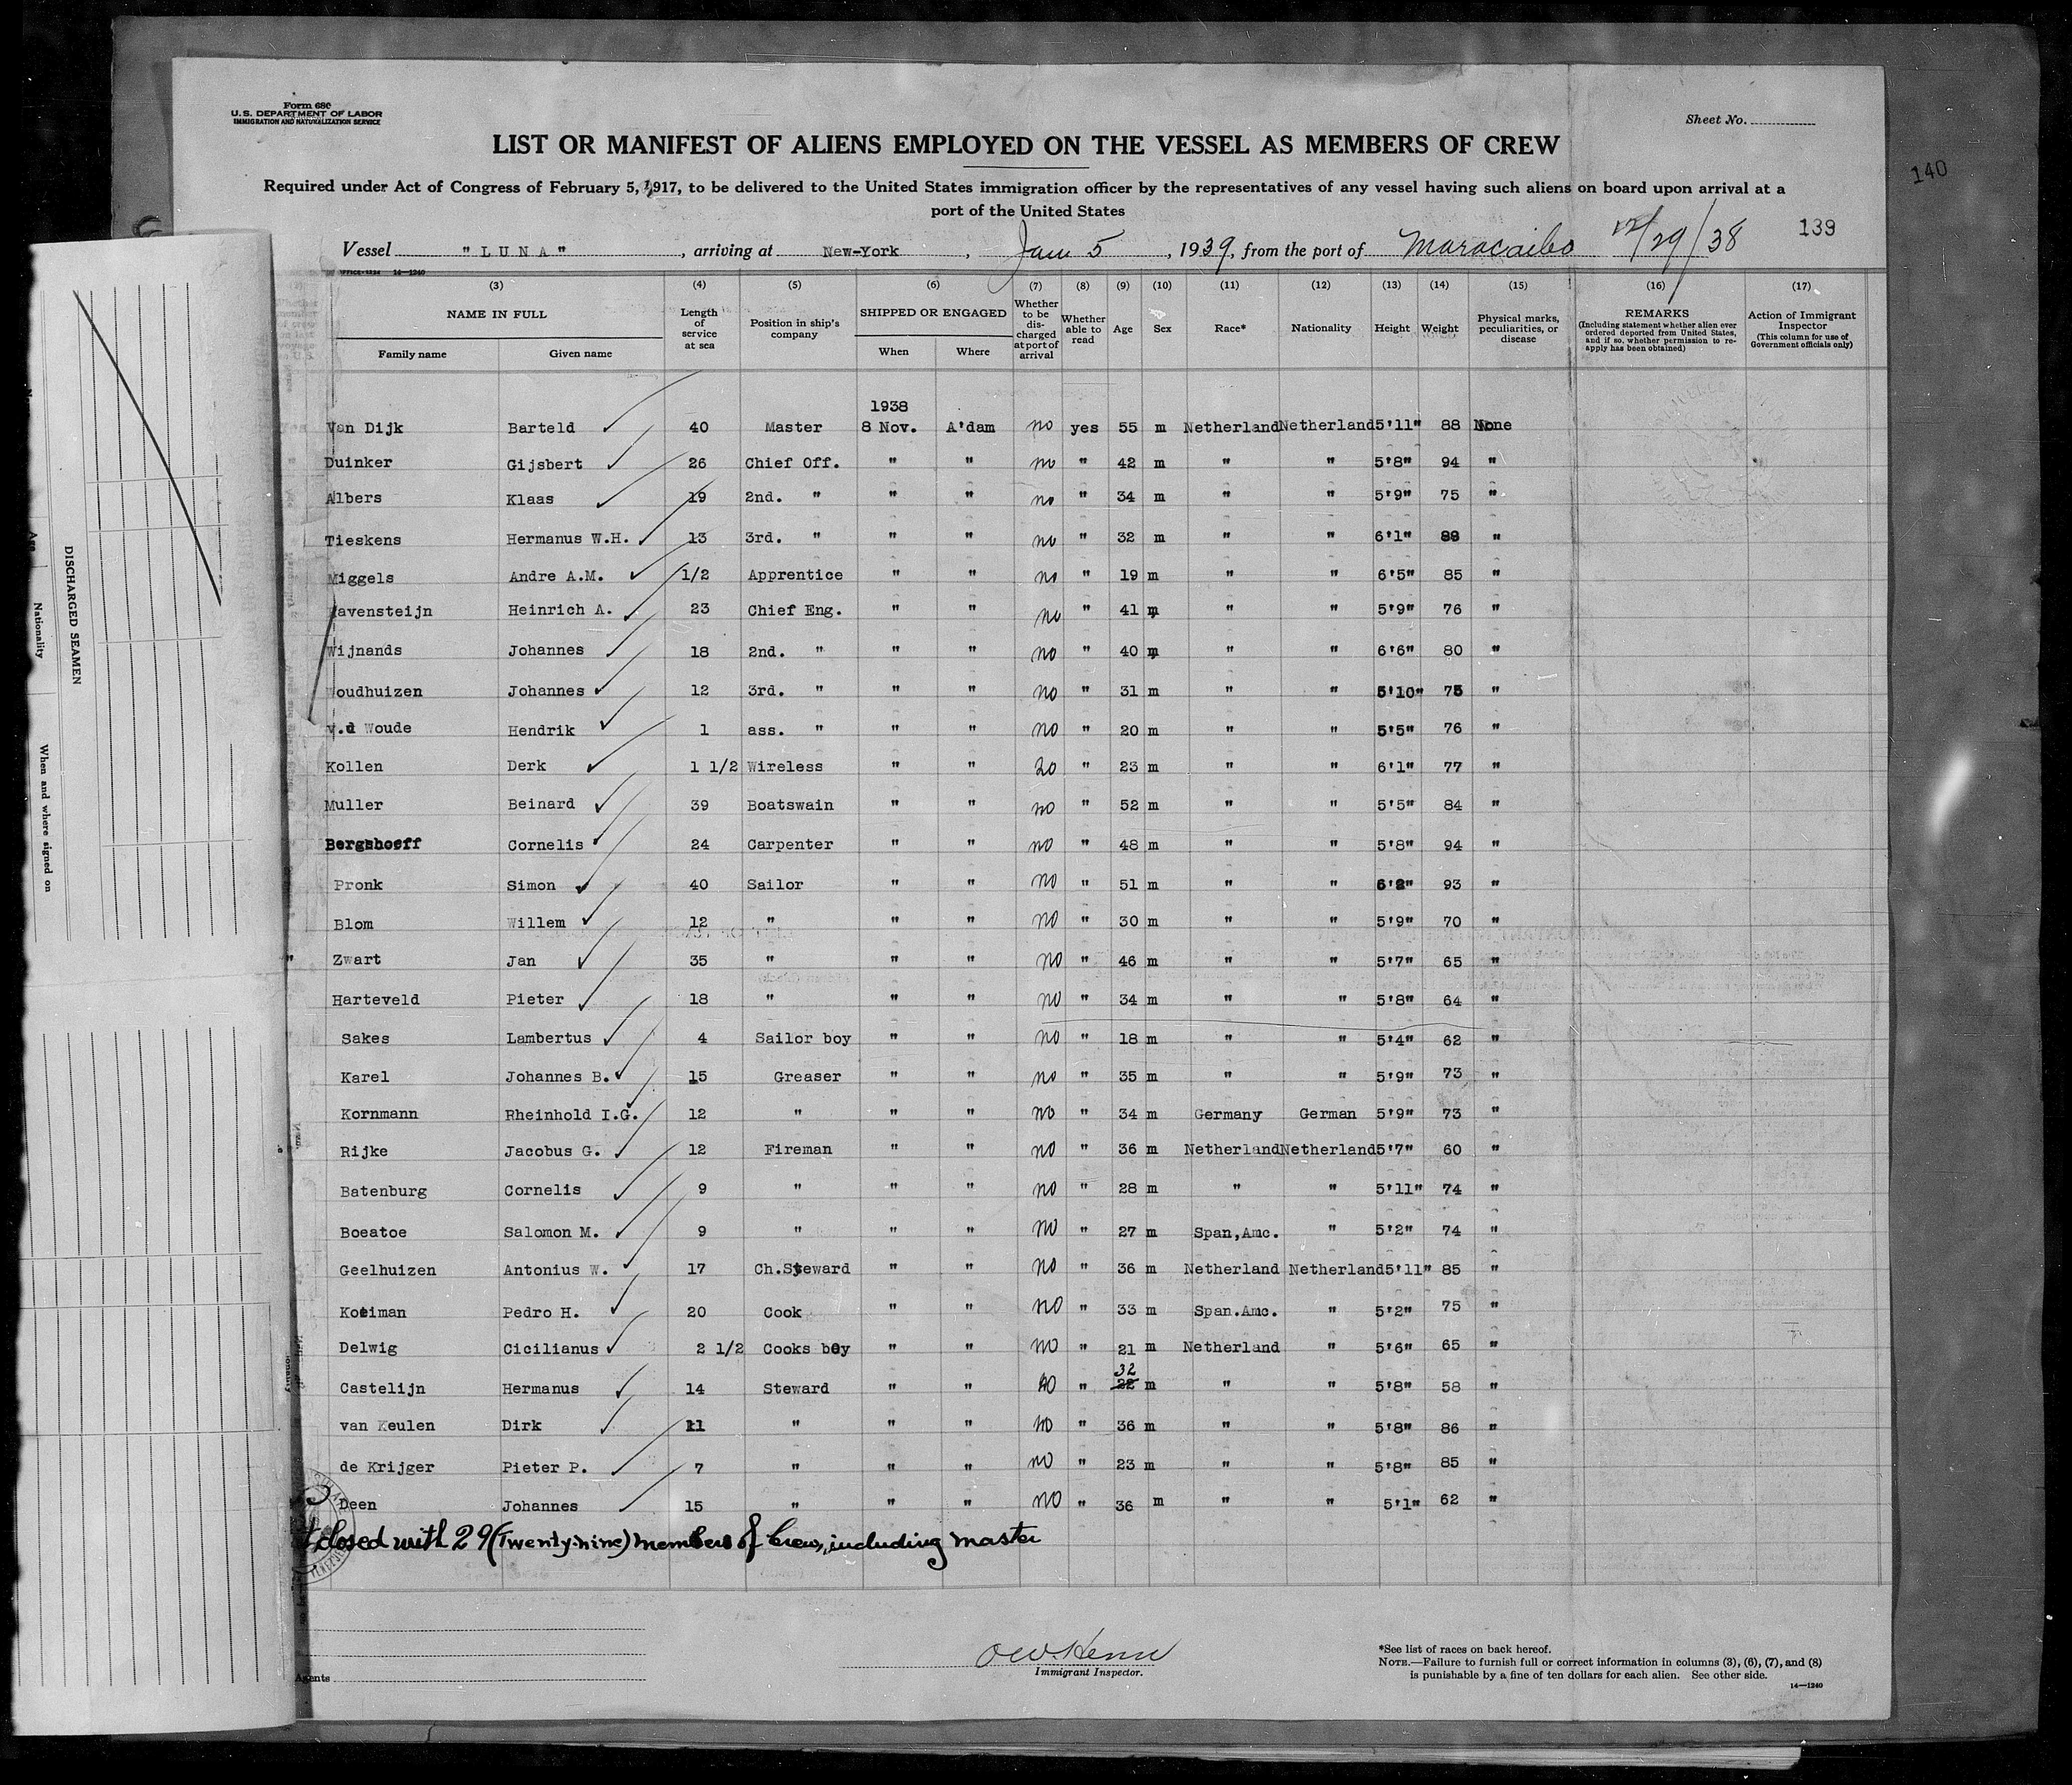 Form 680
U. S. DEPARTMENT OF LABOR
IMMIGRATION AND NATURALIZATION SERVICE
Sheet No.
LIST OR MANIFEST OF ALIENS EMPLOYED ON THE VESSEL AS MEMBERS OF CREW
140
Required under Act of Congress of February 5, 1917, to be delivered to the United States immigration officer by the representatives of any vessel having such aliens on board upon arrival at a
port of the United States
139
Vessel "LUNA", arriving at New-York, Jan 5, 1939, from the port of Maracaibo 12/29/38
14—1240
(3) (4) (5) (6) (7) (8) (9) (10) (11) (12) (13) (14) (15) (16) (17)
NAME IN FULL Family name Given name
Length of service at sea
Position in ship's company
SHIPPED OR ENGAGED When Where
Whether to be discharged at port of arrival
Whether able to read
Age Sex Race* Nationality Height Weight
Physical marks, peculiarities, or disease
REMARKS (Including statement whether alien ever ordered deported from United States, and if so, whether permission to reapply has been obtained)
Action of Immigrant Inspector (This column for use of Government officials only)
1938
Van Dijk Barteld 40 Master 8 Nov. A'dam no yes 55 m Netherland Netherland 5'11" 88 None
Duinker Gijsbert 26 Chief Off. " " no " 42 m " " 5'8" 94 "
Albers Klaas 19 2nd. " " " no " 34 m " " 5'9" 75 "
Tieskens Hermanus W.H. 13 3rd. " " " no " 32 m " " 6'1" "
Miggels Andre A.M. 1/2 Apprentice " " no " 19 m " " 6'5" 85 "
avensteijn Heinrich A. 23 Chief Eng. " " no " 41 m " " 5'9" 76 "
Wijnands Johannes 18 2nd. " " " no " 40 m " " 6'6" 80 "
oudhuizen Johannes 12 3rd. " " " no " 31 m " " 5'10" 75 "
v.d Woude Hendrik 1 ass. " " " no " 20 m " " 5'5" 76 "
Kollen Derk 1 1/2 Wireless " " no " 23 m " " 6'1" 77 "
Muller Beinard 39 Boatswain " " no " 52 m " " 5'5" 84 "
Bergshoeff Cornelis 24 Carpenter " " no " 48 m " " 5'8" 94 "
Pronk Simon 40 Sailor " " no " 51 m " " 6'2" 93 "
Blom Willem 12 " " " no " 30 m " " 5'9" 70 "
Zwart Jan 35 " " " no " 46 m " " 5'7" 65 "
Harteveld Pieter 18 " " " no " 34 m " " 5'8" 64 "
Sakes Lambertus 4 Sailor boy " " no " 18 m " " 5'4" 62 "
Karel Johannes B. 15 Greaser " " no " 35 m " " 5'9" 73 "
Kornmann Rheinhold I.G. 12 " " " no " 34 m Germany German 5'9" 73 "
Rijke Jacobus G. 12 Fireman " " no " 36 m Netherland Netherland 5'7" 60 "
Batenburg Cornelis 9 " " " no " 28 m " " 5'11" 74 "
Boeatoe Salomon M. 9 " " " no " 27 m Span,Amc. " 5'2" 74 "
Geelhuizen Antonius W. 17 Ch.Steward " " no " 36 m Netherland Netherland 5'11" 85 "
Koeiman Pedro H. 20 Cook " " no " 33 m Span.Amc. " 5'2" 75 "
Delwig Cicilianus 2 1/2 Cooks boy " " no " 21 m Netherland " 5'6" 65 "
Castelijn Hermanus 14 Steward " " no " 32 22 m " " 5'8" 58 "
van Keulen Dirk 11 " " " no " 36 m " " 5'8" 86 "
de Krijger Pieter P. 7 " " " no " 23 m " " 5'8" 85 "
Deen Johannes 15 " " " no " 36 m " " 5'1" 62 "
closed with 29 (Twenty-nine) members of crew, including master
Immigrant Inspector.
Agents
*See list of races on back hereof.
NOTE.—Failure to furnish full or correct information in columns (3), (6), (7), and (8)
is punishable by a fine of ten dollars for each alien. See other side.
14—1240
DISCHARGED SEAMEN
Age
Nationality
When and where signed on